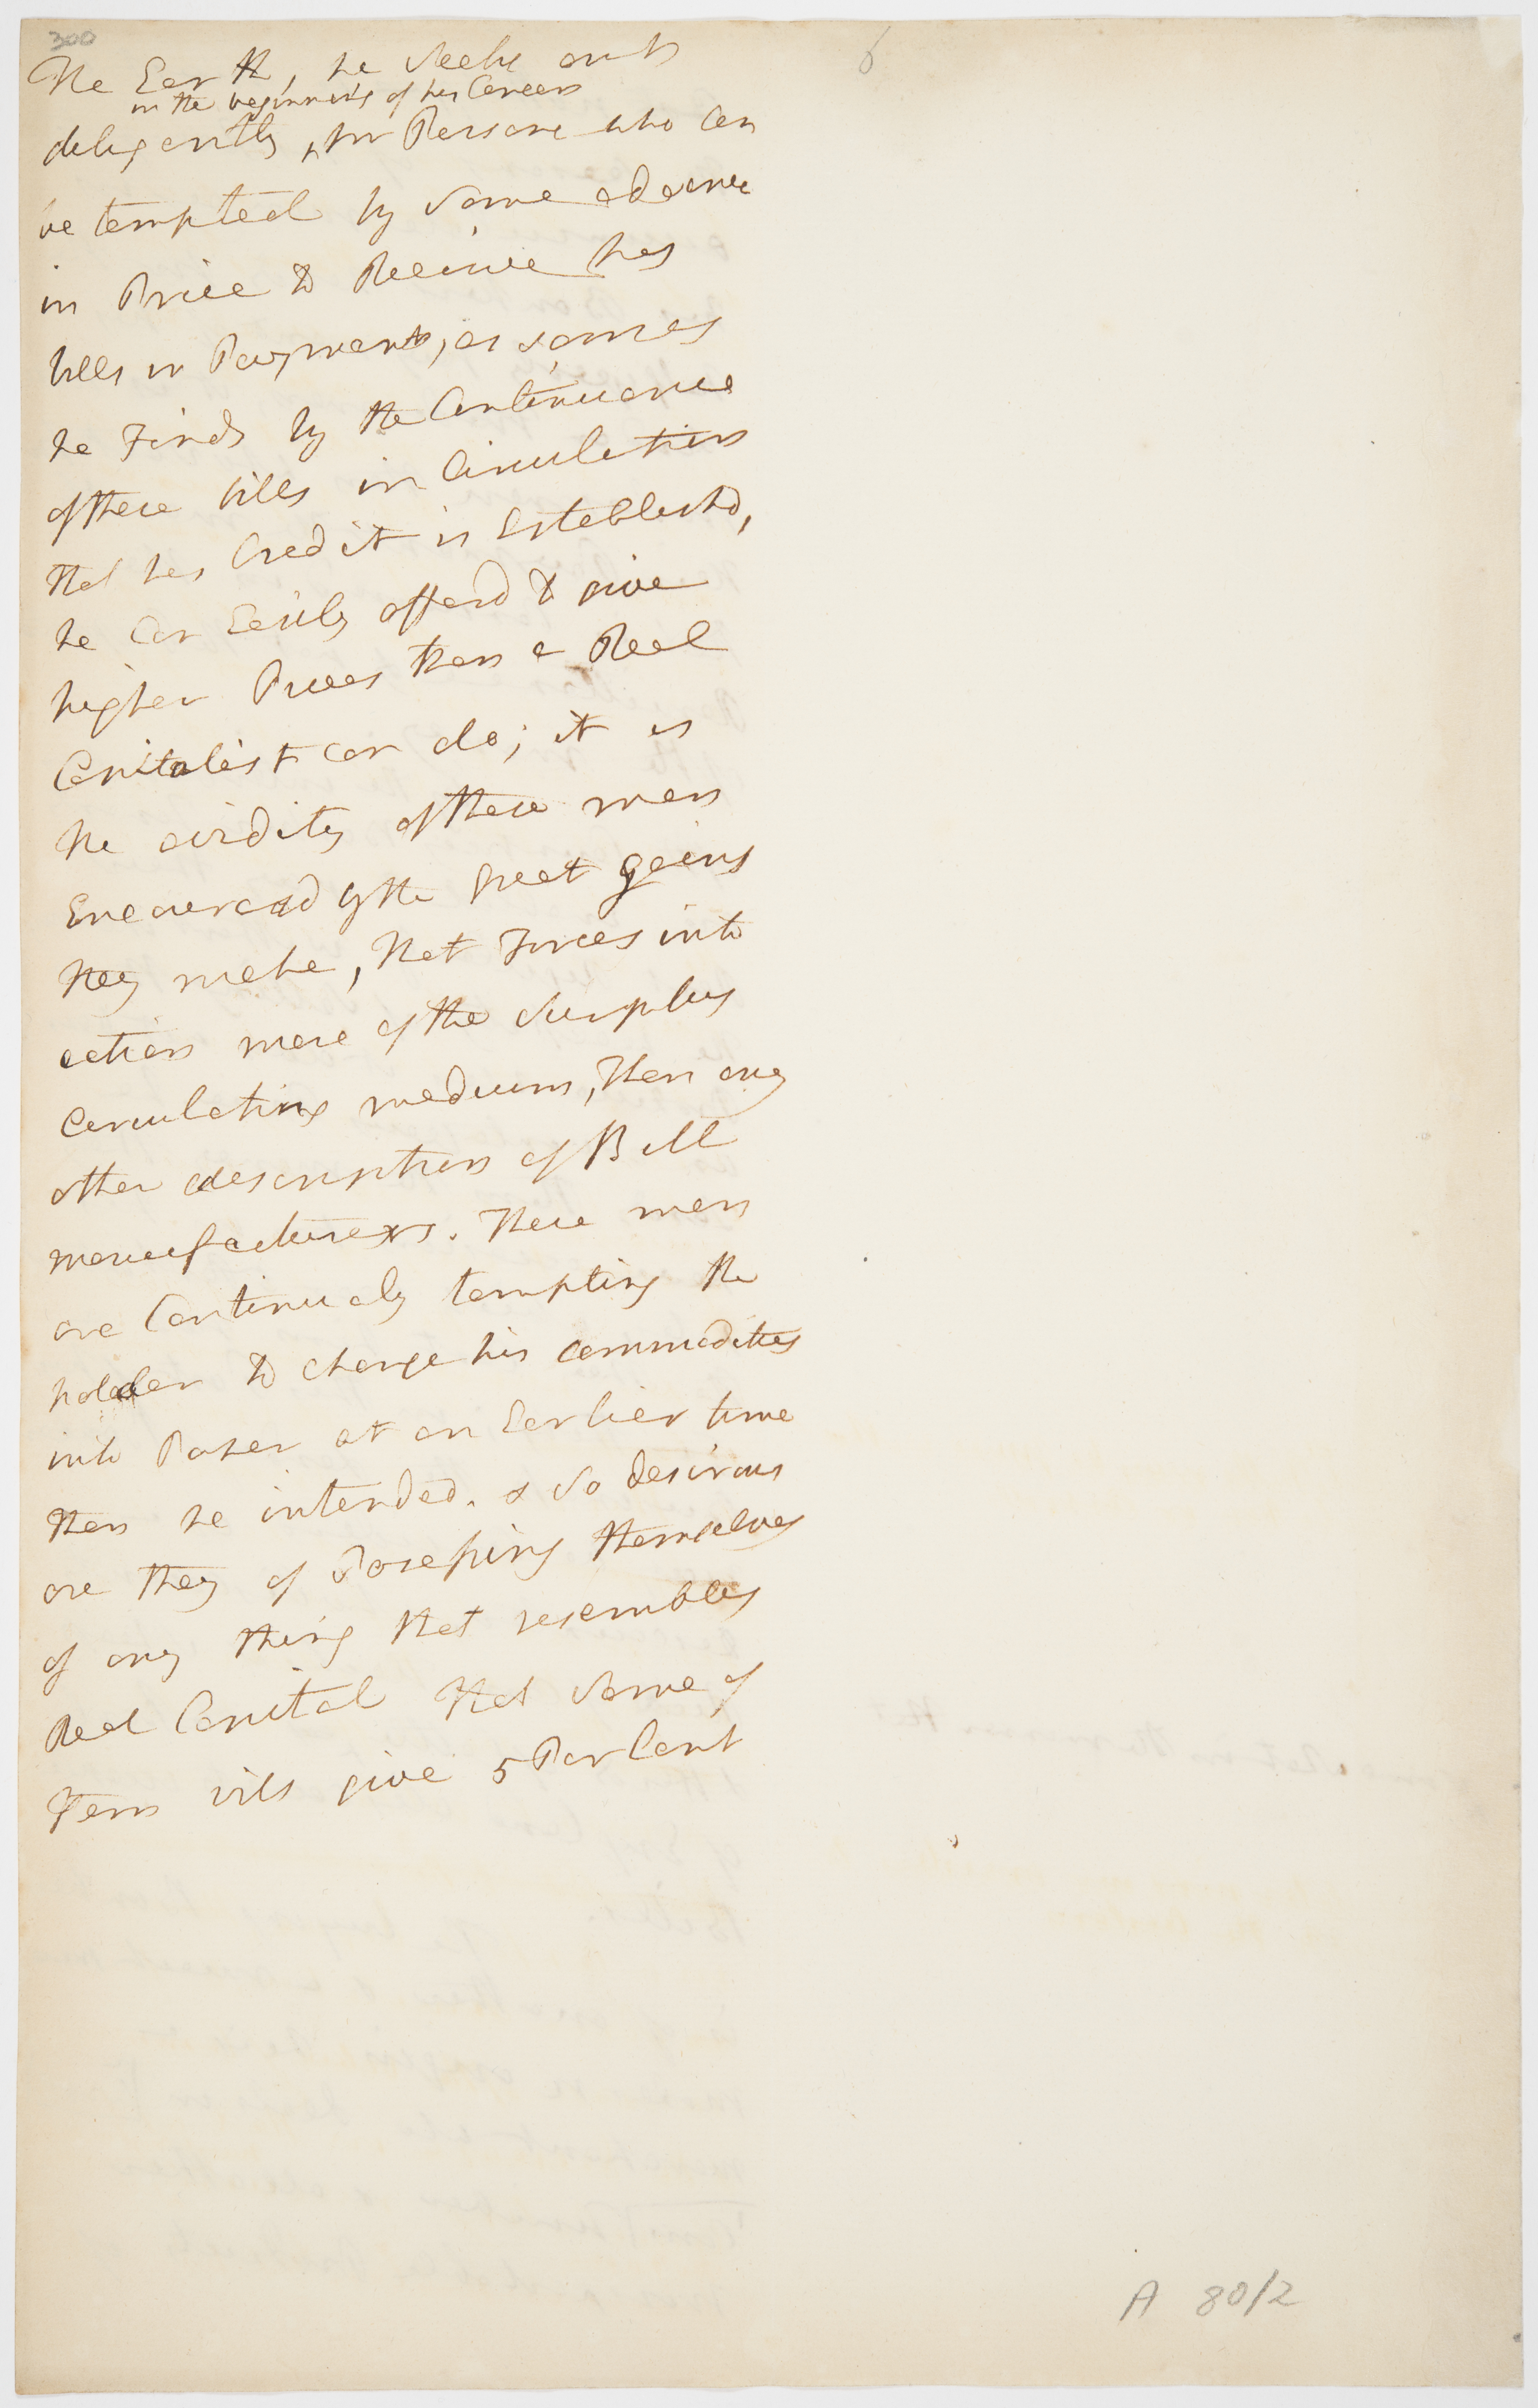 300
6
the Earth, he Seeks out
in the beginning of his Career
deligently ^ for Persons who Can
be tempted by Some advance
in Price to Receive his
bills in Payment, as soon as
he Finds by the Continuance
of these bills in Circulation
that his Credit is Establishd,
he Can Easily afford to give
higher Prices than a Real
Capitalist can do; it is
the avidity of these men
Encouragd by the great gains
they make, that Forces into
action more of the Surplus
Circulating medium, than any
other description of Bill
manufacturers. These men
are Continualy tempting the
holder to change his commodities
into Paper at an Earlier time
than he intended. & So desirous
are they of Possessing themselves
of any thing that resembles
Real Capital that Some of
them will give 5 Per Cent
A 80/2